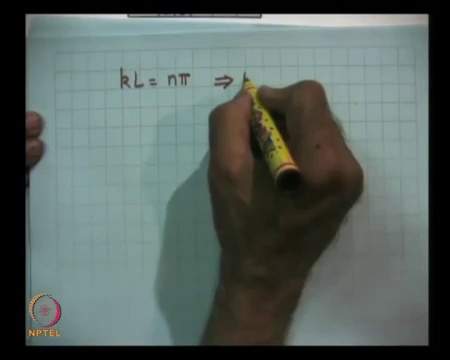 kL = nπ ⇒
NPTEL